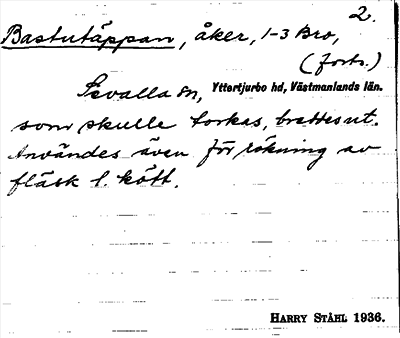 2.
Bastutäppan, åker, 1-3 Bro,
(forts.)
Sevalla sn, Yttertjurbo hd, Västmanlands län.
som skulle torkas, breddes ut.
Användes även för rökning av
fläsk l. kött.
HARRY STÅHL 1936.